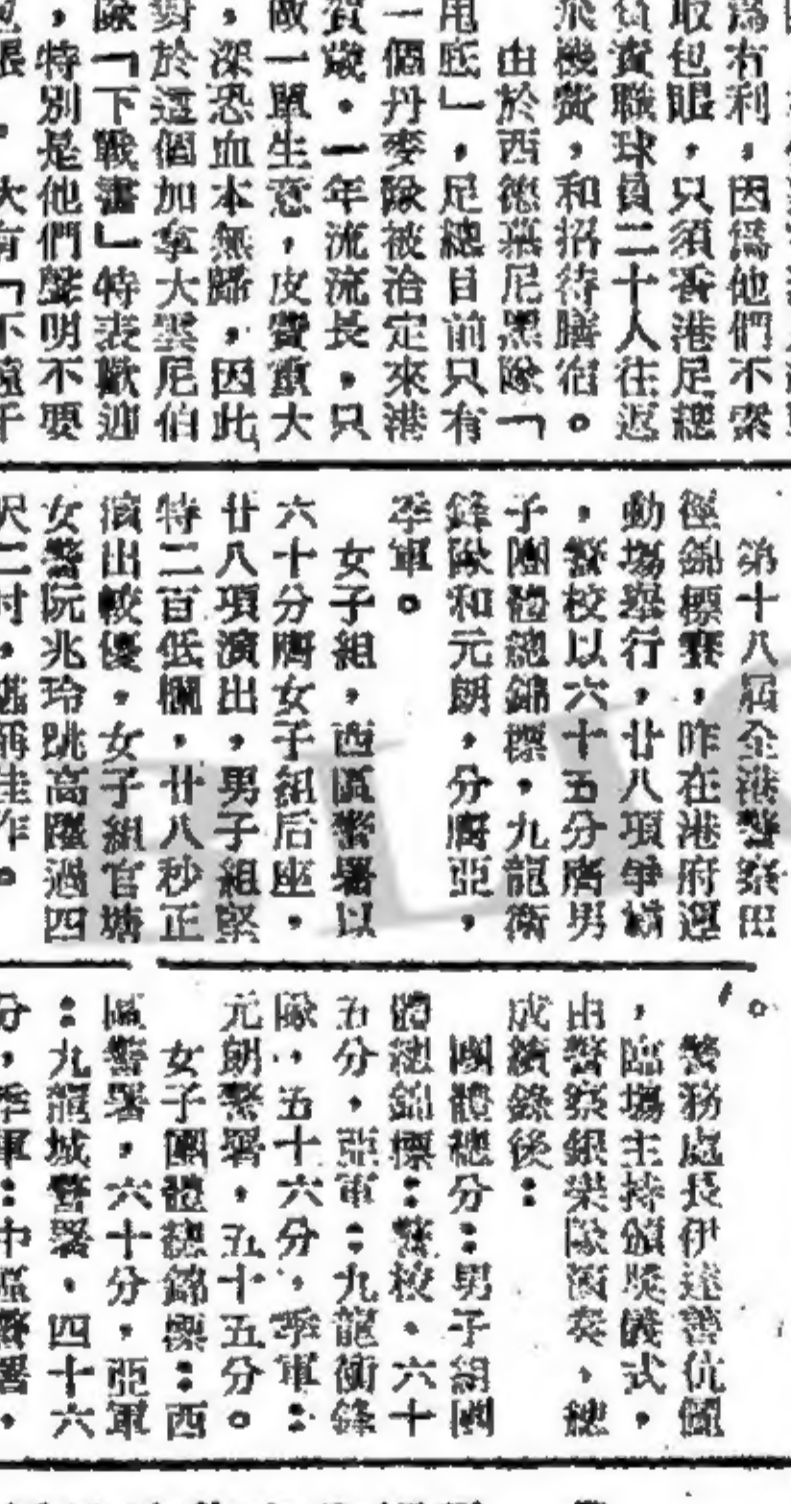 爲有利，因爲他們不索
取包賬，只須香港足總
負責職球員二十人往返
飛機費，和招待膳宿。
由於西德慕尼黑隊「
甩底」，足總目前只有
一個丹麥隊被洽定來港
賀歲。一年流流長，只
做一單生意，皮費重大
，深恐血本無歸，因此
對於這個加拿大雲尼伯
隊「下戰書」特表歡迎
，特別是他們聲明不要
大有「不遠千
第十八屆全港警察田
徑錦標賽，昨在港府運
動塲舉行，廿八項爭續
，警校以六十五分膺男
子團體總錦標，九龍衝
鋒隊和元朗，分膺亞，
季軍。
女子組，西區警署以
六十分膺女子組后座，
廿八項演出，男子組堅
特二百低欄，廿八秒正
演出較優，女子組官塘
女警阮兆玲跳高躍過四
呎二吋，堪稱佳作。
警務處長伊達善伉儷
，臨塲主持頒獎儀式，
由警察銀樂隊演奏，總
成績錄後：
團體總分：男子組團
體總錦標：警校，六十
五分，亞軍：九龍衝鋒
隊，五十六分，季軍：
元朗警署，五十五分。
女子團體總錦標：西
區警署，六十分，亞軍
：九龍城警署，四十六
分，季軍：中區警署，